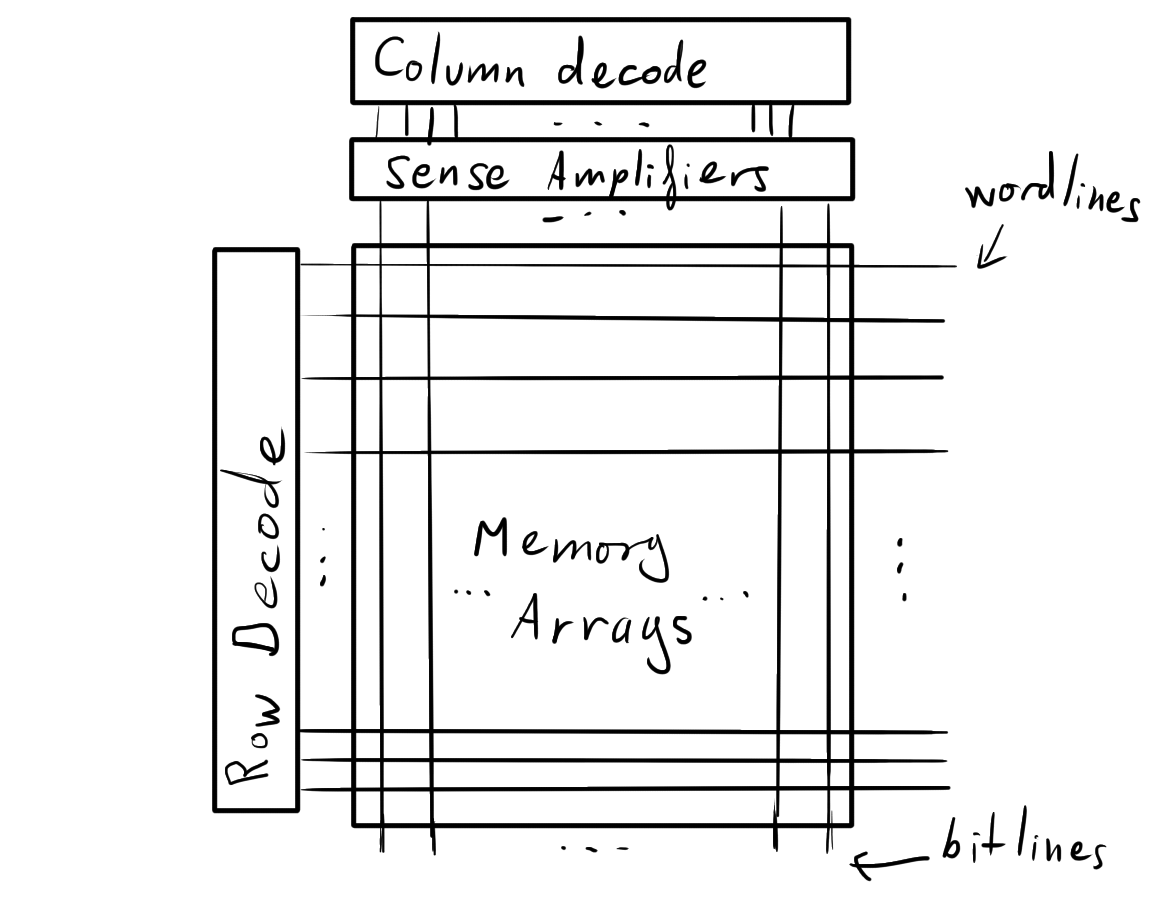 Column decode
Sense Amplifiers
wordlines
Row Decode
Memory
Arrays
bitlines